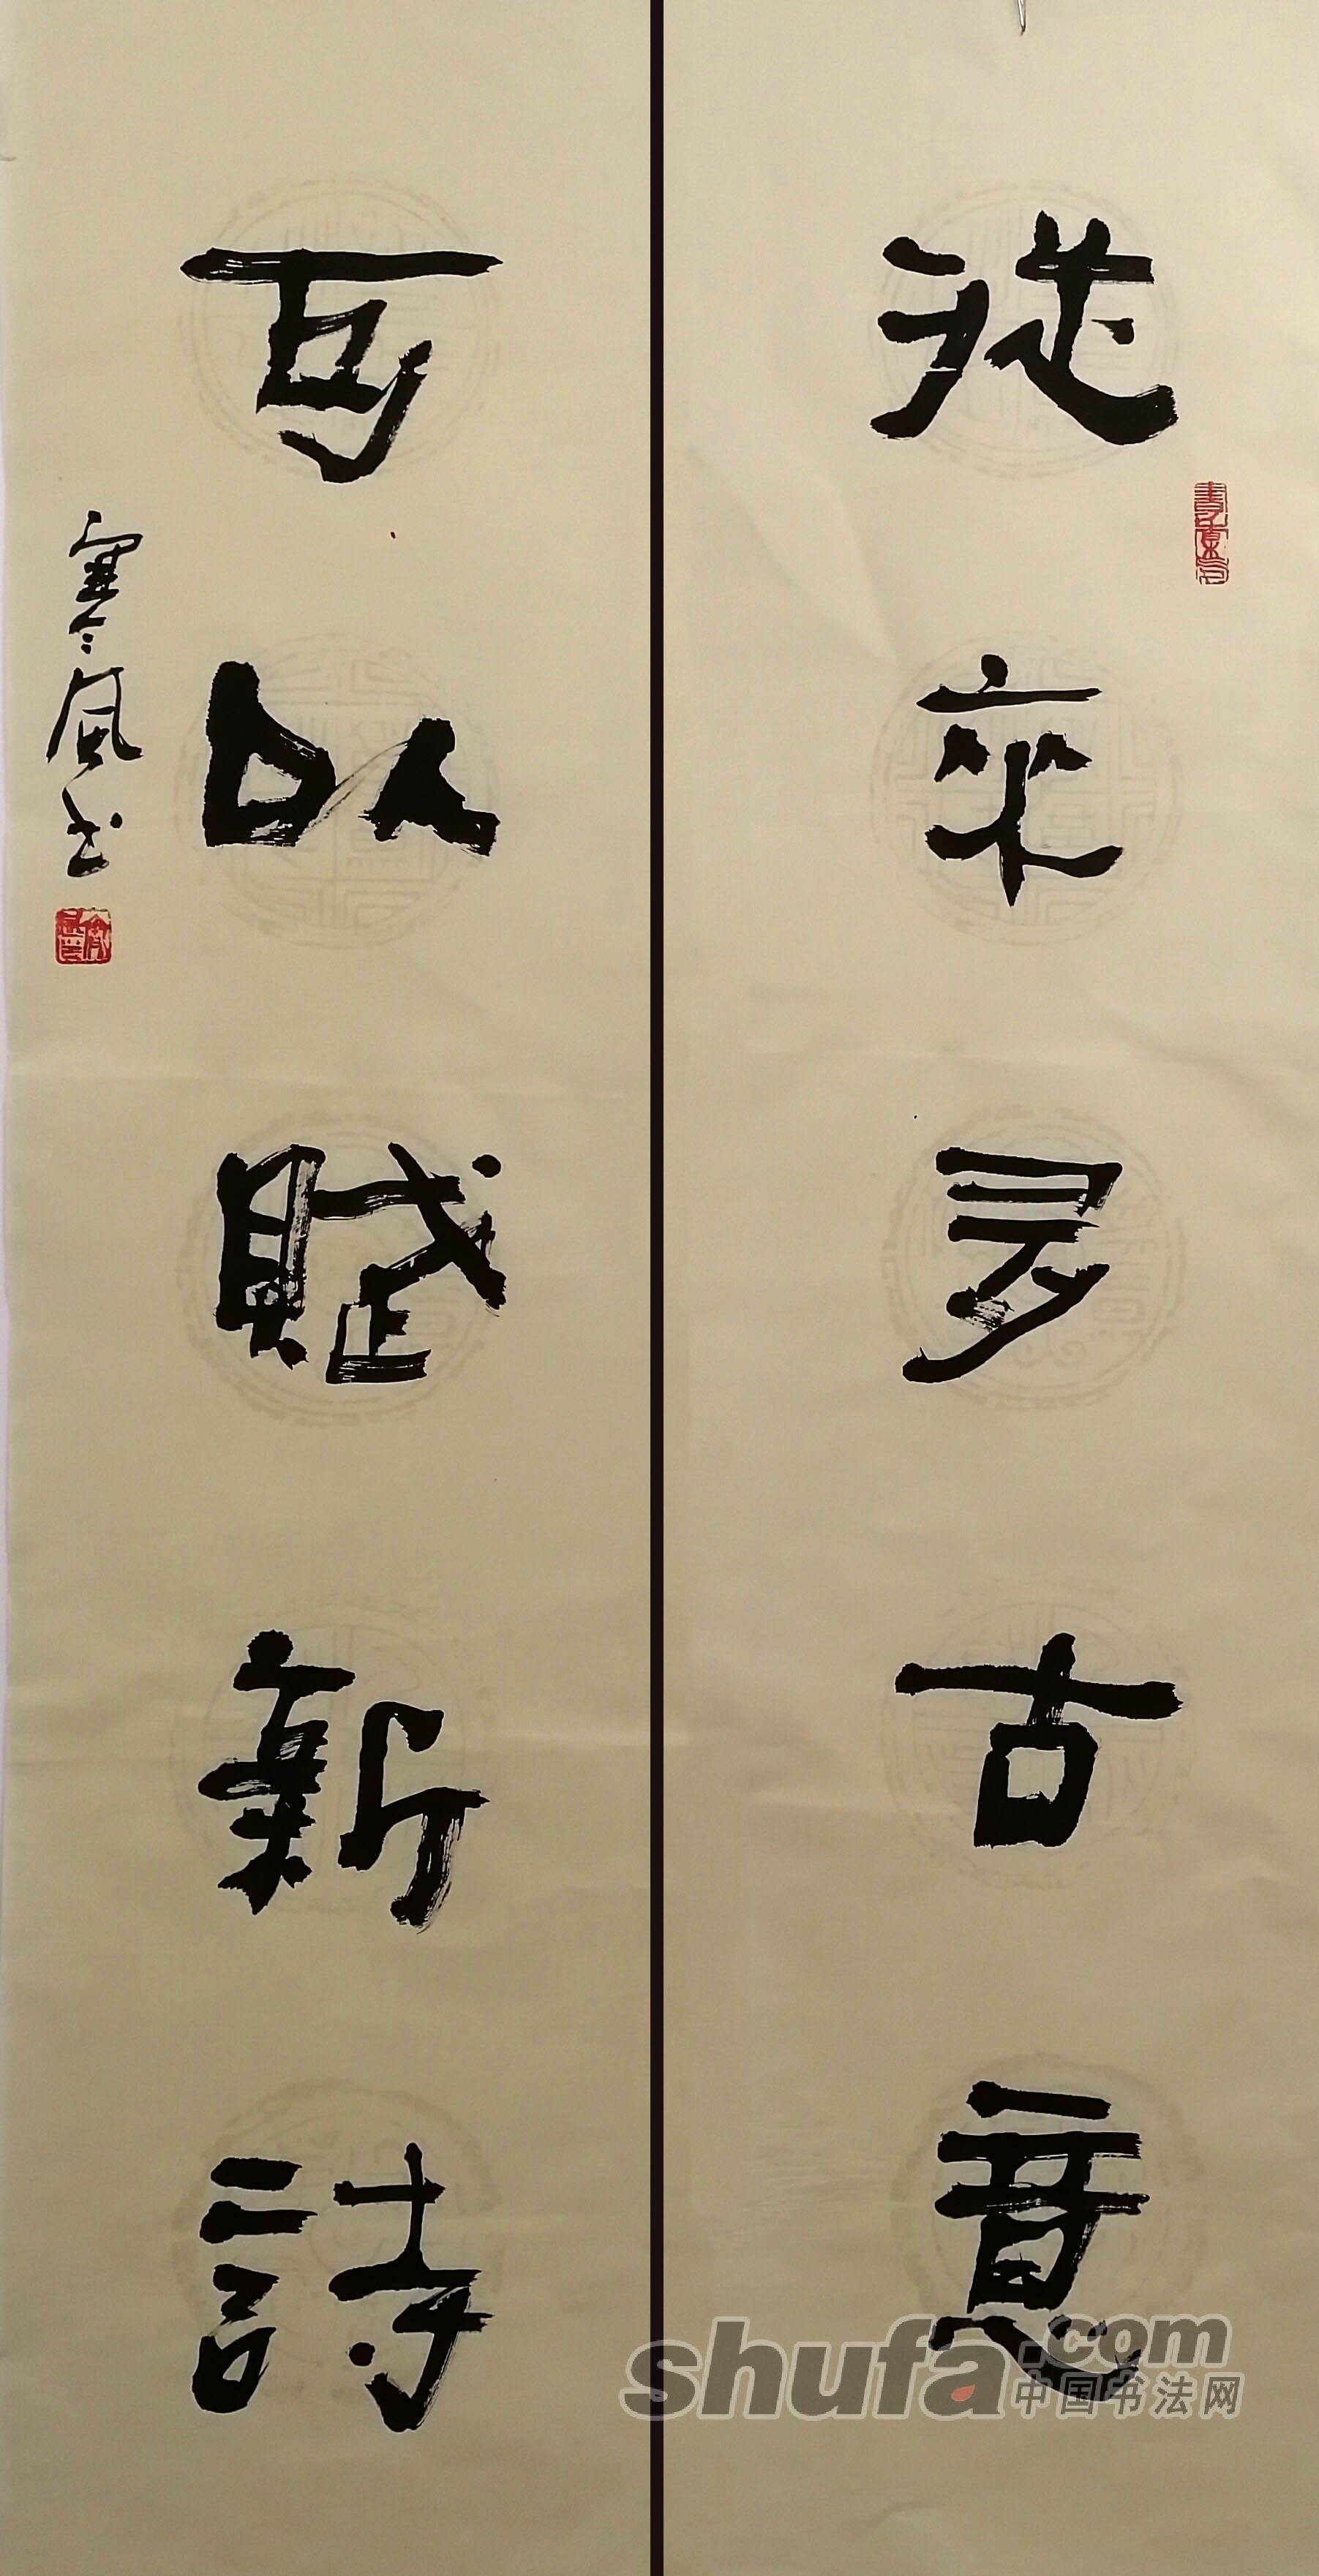 從來多古意
可以賦新詩
寒風书
shufa.com
中国书法网